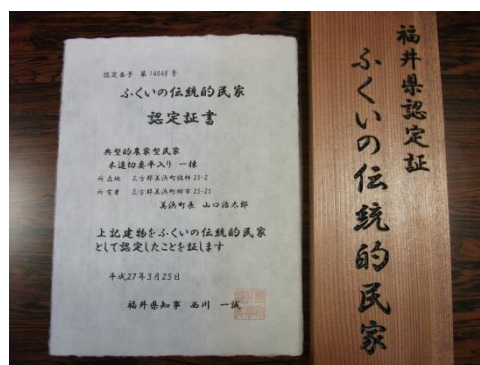 認定番号 第14048号
ふくいの伝統的民家
認定証書
典型的農家型民家
木造切妻平入り 一棟
所在地 三方郡美浜町佐柿25-2
所有者 三方郡美浜町郷市25-25
美浜町長 山口治太郎
上記建物をふくいの伝統的民家
として認定したことを証します
平成27年3月25日
福井県知事 西川 一誠
福井県認定証
ふくいの伝統的民家